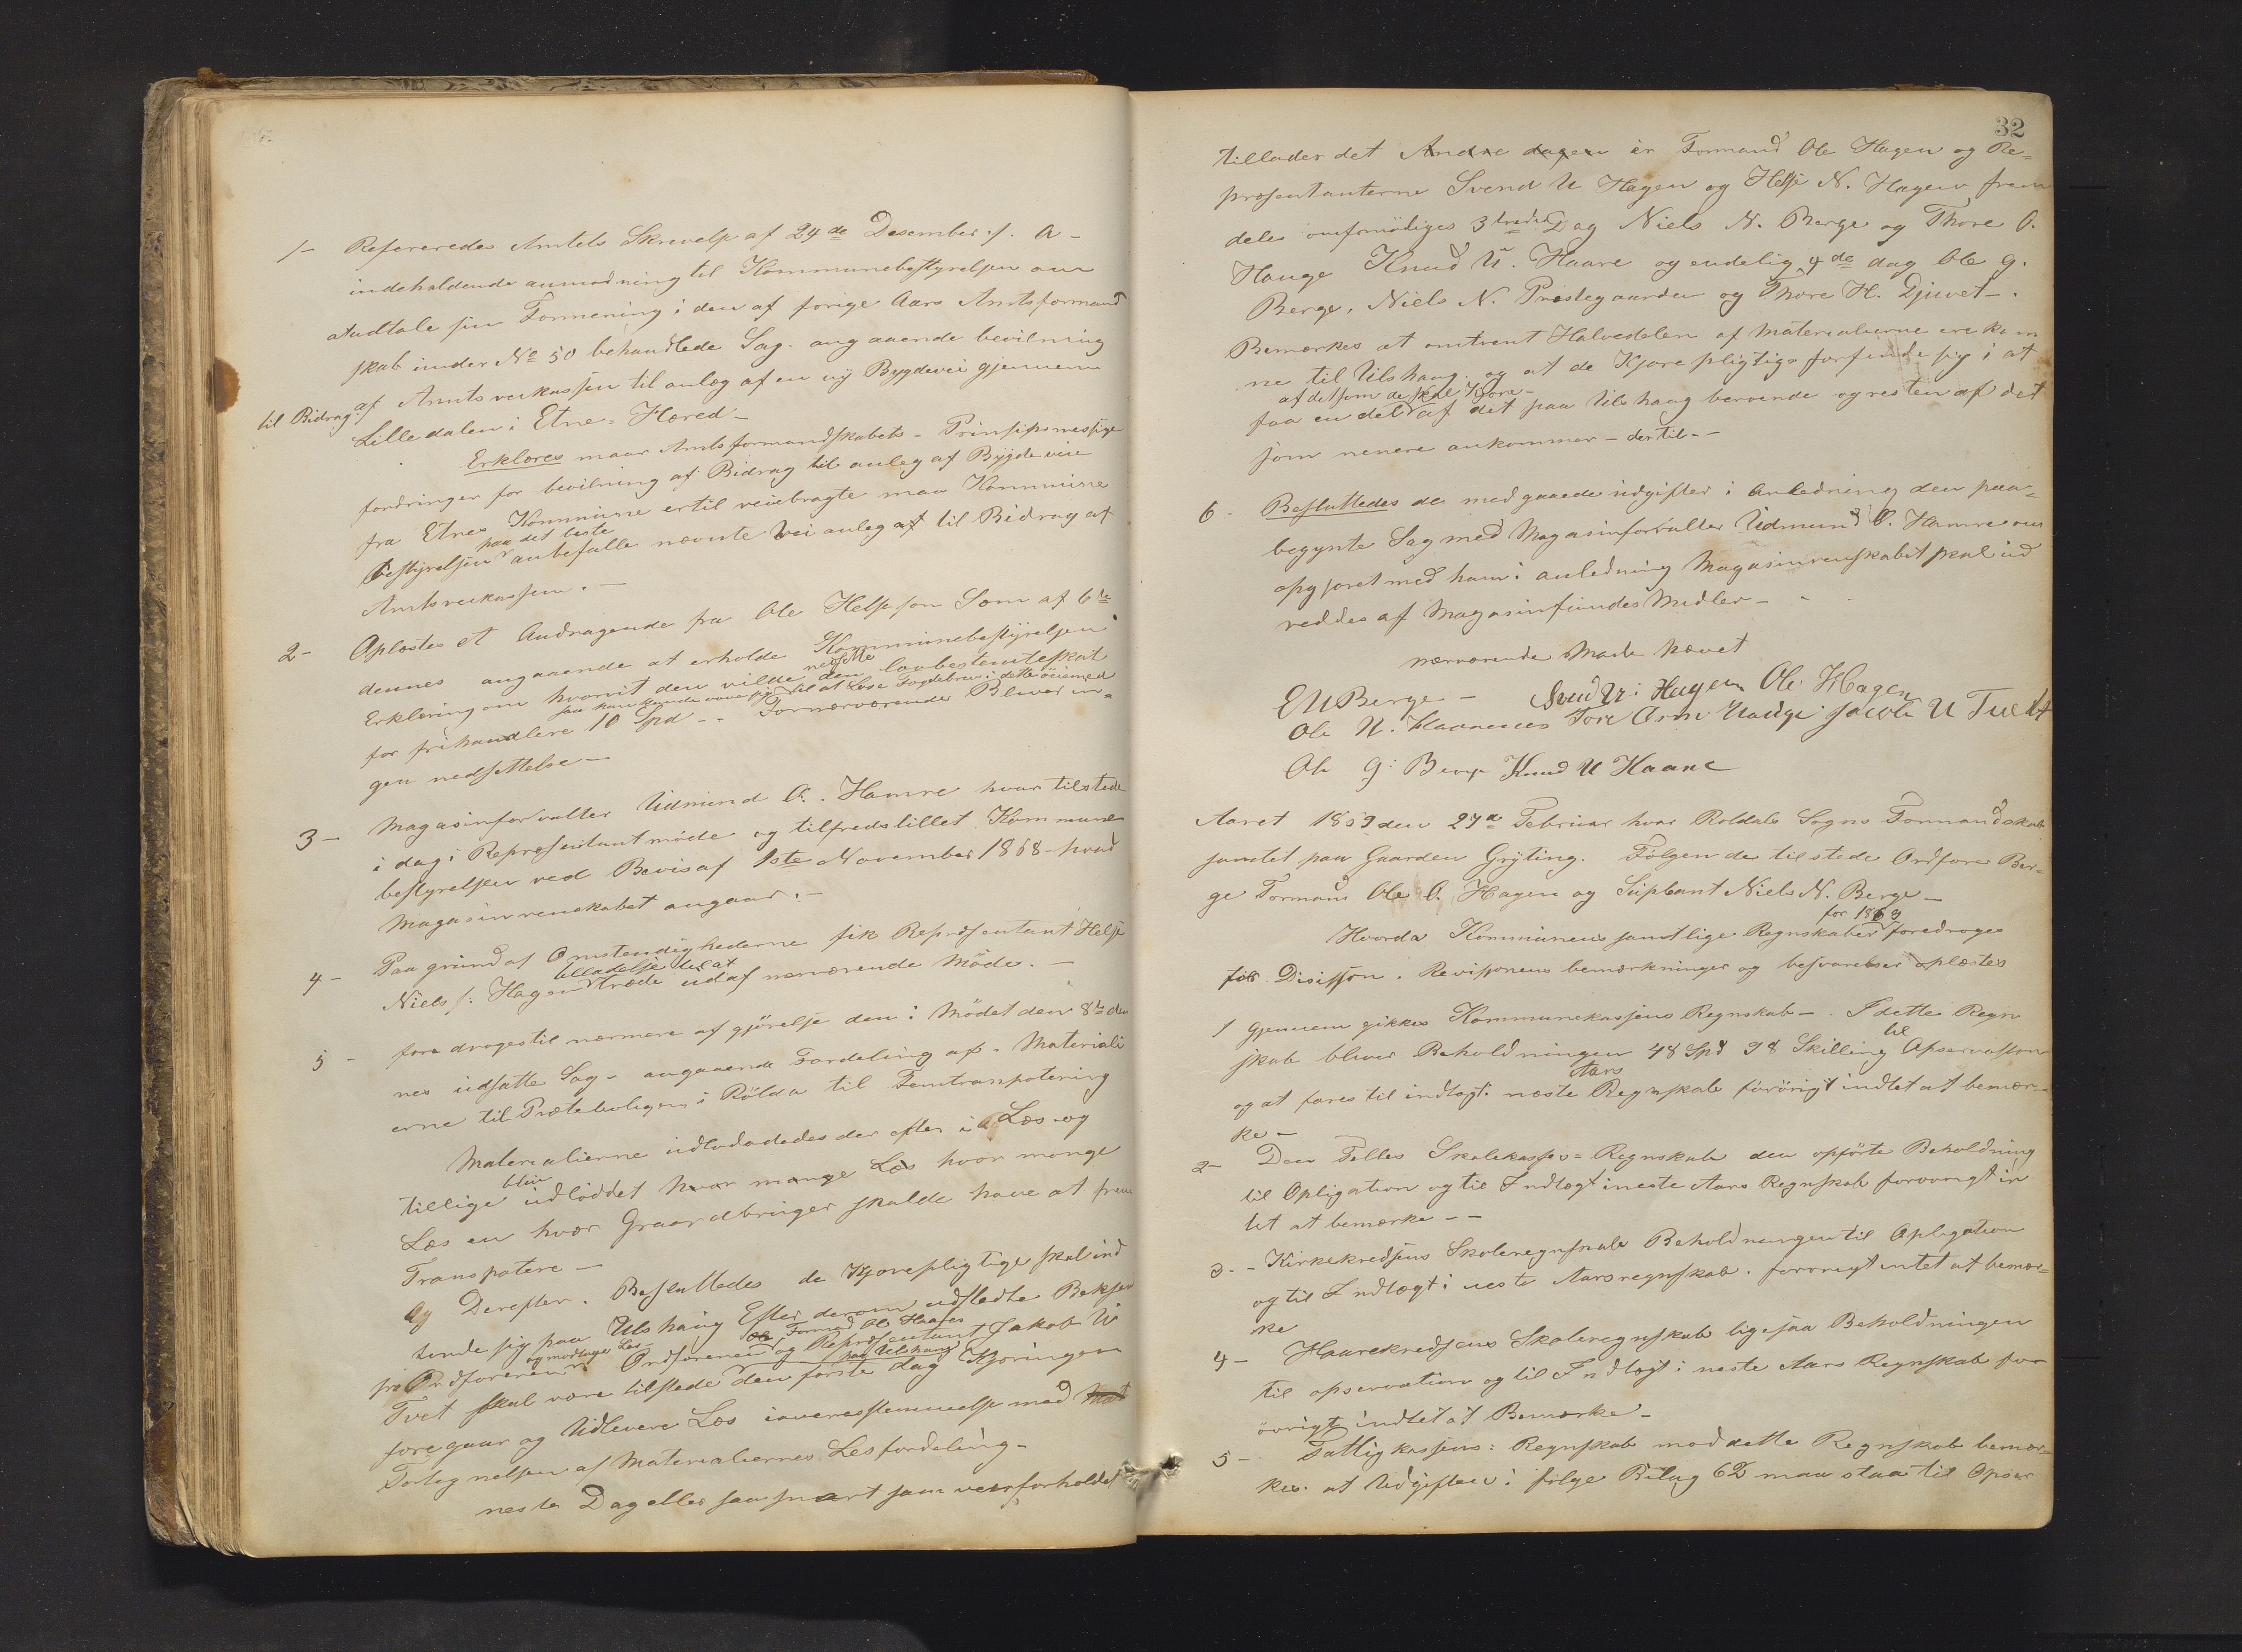 1- Refereredes Amtets Skrivelse af 24de Desember f. A-
indeholdende anmodning til Kommunebestyrelsen om
at udtale sin Formening i den af forige Aars Amtsformand
skab under No 50 behandlede Sag. angaaende bevilning
til Bidrag af Amtsveikassen til anlæg af en ny Bygdevei gjennem
Lilledalen i Etne-Hæred-
Erklæres maar Amtsformandskabets- Prinsipmessige
fordringer for bevilning af Bidrag til anlæg af Bygdeveie
fra Etnes Kommune ertil veiebragte maa Kommune
paa det beste
bestyrelsen anbefalle nævnte Vei anleg af til Bidrag af
Amtsveikassen.-
2- Oplæstes et Andragende fra Ole Helsesøn Søm af 6te
dennes angaaende at erholde Kommunebestyrelsen
nedsætte
Erklæring om hvorvit den vilde den lovbestemteskat
saa han kunde vove sig til at Løse Fogdebrev i dette öiemed
for frihandlere 10 Spd-- Fornærværende Bliver in-
gen nedsettelse-
3- Magasinforvalter Udmund O. Hamre hvar tilstede
i dag i Represæntantmøde og tilfredstillet Kommune
bestyrelsen ved Bevis af 1ste November 1868- hvad
Magasinrenskabet angaar.-
4- Paa grund af Omstendighederne fik Representant Helje
tilladelse til at
Niels s: Hagen træde ud af nærværende Møde.-
5- foredroges til nærmere afgjörelse den i Mødet den 8de den
nes udsatte Sag- angaaende Fordeling af- Materiali
erne til Præteboligen i Röldal til Femtranpotering
Materialierne udlodadedes der efter i Læs og
bliv
tillige udloddet hvor mange Læs hvor mange
Læs en hvor Graardbringer skulde have at frem
Transpotere-
og Derefter. Besluttedes de Kjørepligtige skal ind
finde sig paa Ulshaug Efter derom udstedte Bekjen
og modtager Læs- Ole Formand Ole Haares
fra Ordføreren Ordføreren og Represæntant Jakob U
paa Ulshaug
Tvet skal være tilstede den første dag Kjøringen
foregaar og Udlevere Læs i overesstemmelse med Mat
Fortegnelsen af Materialiernes Lesfordeling-
neste Dag eller saa snart som veirforholdet
32
tillader det Andre dagen er Formand Ole Hagen og Re=
præsentanterne Svend U Hagen og Helje N. Hagen frem
deles anfomödiges 3tredie Dag Niels N. Berge og Thore O.
Hauge Knud U. Haare og endelig 4de dag Ole G.
Berge, Niels N. Prestegaarden og Thore H. Djuvet-.
Bemærkes at omtrent Halvedelen af Materialierne ere kom
ne til Ulshaug. og at de Kjørepligtige forfinde sig i at
af det som de skal Kjøre-
faa en del af det paa Ulshaug beroende og resten af det
som senere ankommer- dertil--
6- Besluttedes de medgaaede udgifter i Anledning den paa-
begynte Sag med Magasinforvalter Udmund O. Hamre om
opgjøret med ham i anledning Magasinrenskabet skal ud
reddes af Magasinfundes Midler-
nærværende Møde hævet
E U Berge- Svend U: Hagen Ole Hagen
Ole N. Haarenes Tore Orm Hauge Jacob U Tvedt
Ole G: Berge Knud U Haare
Aaret 1869 den 27de Februar hvar Roldals Sogns Formandskab
samlet paa Gaarden Gryting. Følgende tilstede Ordfører Ber-
ge Formand Ole O. Hagen og Supleant Niels N. Berge-
for 1869
Hvorda Kommunens samtlige Regnskaber foredroges
før Disisson. Revissonens bemærkninger og besvarelser oplæstes
1 Gjennem gikkes Kommunekassens Regnskab-. I dette Regn
til
skab bliver Beholdningen 48 Spd 98 Skilling Opservasson
Aars
og at føres til indtægt i næste Regnskab förörigt indtet at bemær-
ke-
2- Den Felles Skolekasses=Regnskab den opførte Beholdning
til Opligation og til Indtægt i neste Aars Regnskab forovrigt in
tet at bemærke--
3-- Kirkekredsens Skoleregnskab Beholdningen til Opligation
og til Indtægt i neste Aarsregnskab. forovrigt intet at bemær=
ke
4- Haarekredsens Skoleregnskab ligesaa Beholdningen
til opservation og til Indtægt i neste Aars Regnskab for
övrigt indtet at Bemærke-
5- Fattigkassens: Regnskab mod dette Regnskab bemær-
kes at Udgiften i følge Bilag 62 maa staa til Opser